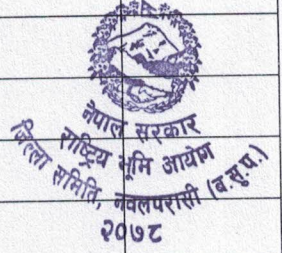 नेपाल सरकार
राष्ट्रिय भूमि आयोग
जिल्ला समिति, नवलपरासी (ब.सु.प.)
२०७८